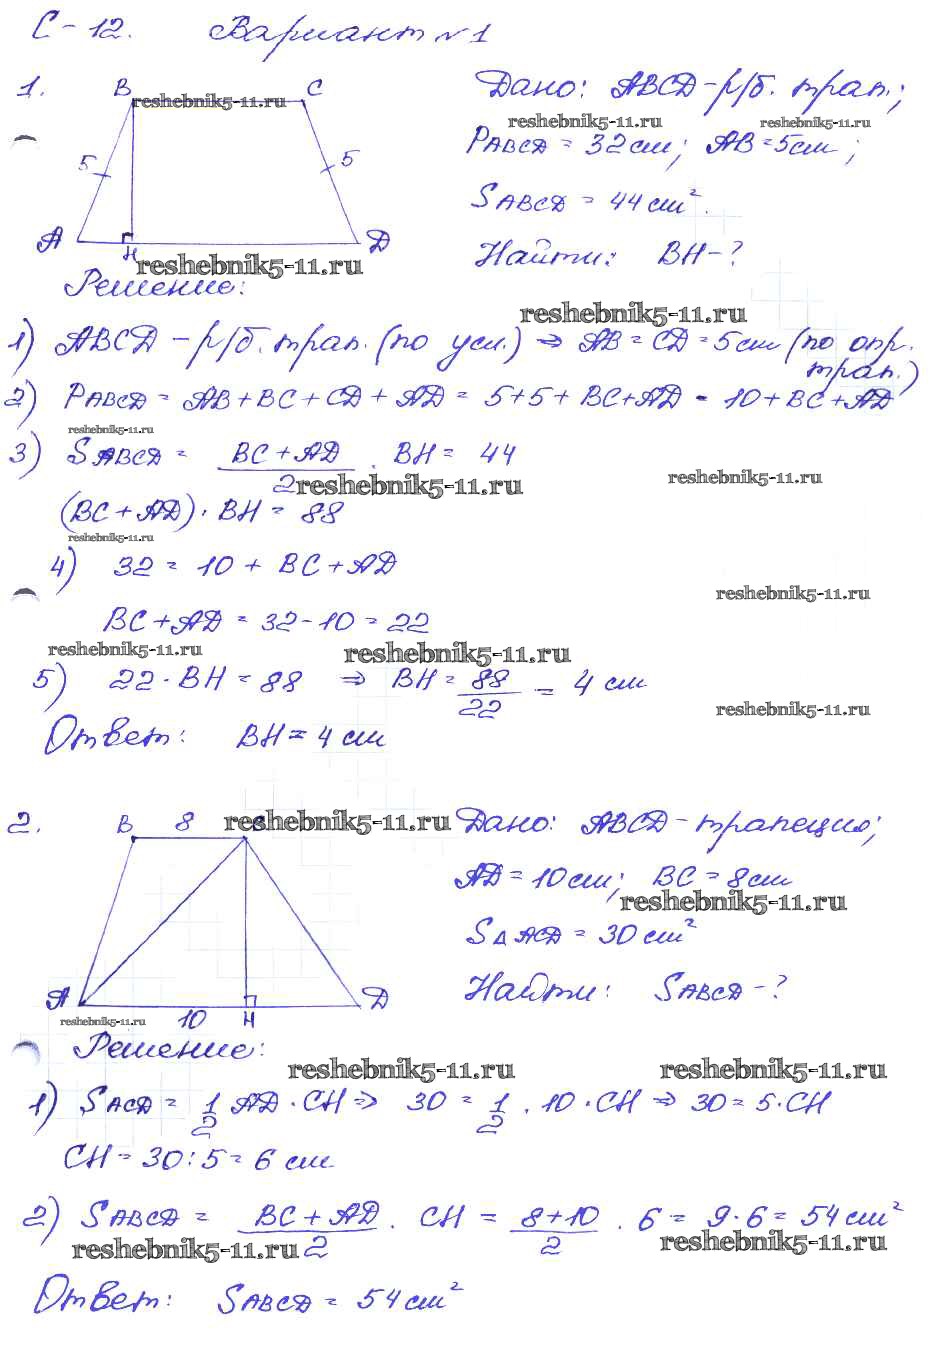 С-12. Вариант №1
1. B C
reshebnik5-11.ru
5 5
A H D
Дано: ABCD-р/б. трап.;
reshebnik5-11.ru reshebnik5-11.ru
PABCD = 32см; AB=5см;
SABCD = 44см².
Найти: BH-?
reshebnik5-11.ru
Решение:
reshebnik5-11.ru
1) ABCD-р/б. трап. (по усл.) ⇒ AB=CD=5см (по опр.
трап.)
2) PABCD = AB+BC+CD+AD = 5+5+BC+AD = 10+BC+AD
reshebnik5-11.ru
3) SABCD = BC+AD/2 · BH = 44
reshebnik5-11.ru reshebnik5-11.ru
(BC+AD)·BH = 88
reshebnik5-11.ru
4) 32 = 10 + BC+AD
reshebnik5-11.ru
BC+AD = 32-10 = 22
reshebnik5-11.ru reshebnik5-11.ru
5) 22·BH = 88 ⇒ BH = 88/22 = 4 см
reshebnik5-11.ru
Ответ: BH = 4 см
2. B 8 C
reshebnik5-11.ru
A 10 H D
reshebnik5-11.ru
Дано: ABCD-трапеция;
AD=10см; BC=8см
reshebnik5-11.ru
S∆ACD = 30см²
Найти: SABCD-?
Решение:
reshebnik5-11.ru reshebnik5-11.ru
1) SACD = 1/2 AD·CH ⇒ 30 = 1/2 · 10·CH ⇒ 30=5·CH
CH=30:5=6 см
2) SABCD = BC+AD/2 · CH = 8+10/2 · 6 = 9·6 = 54см²
reshebnik5-11.ru reshebnik5-11.ru
Ответ: SABCD = 54см²